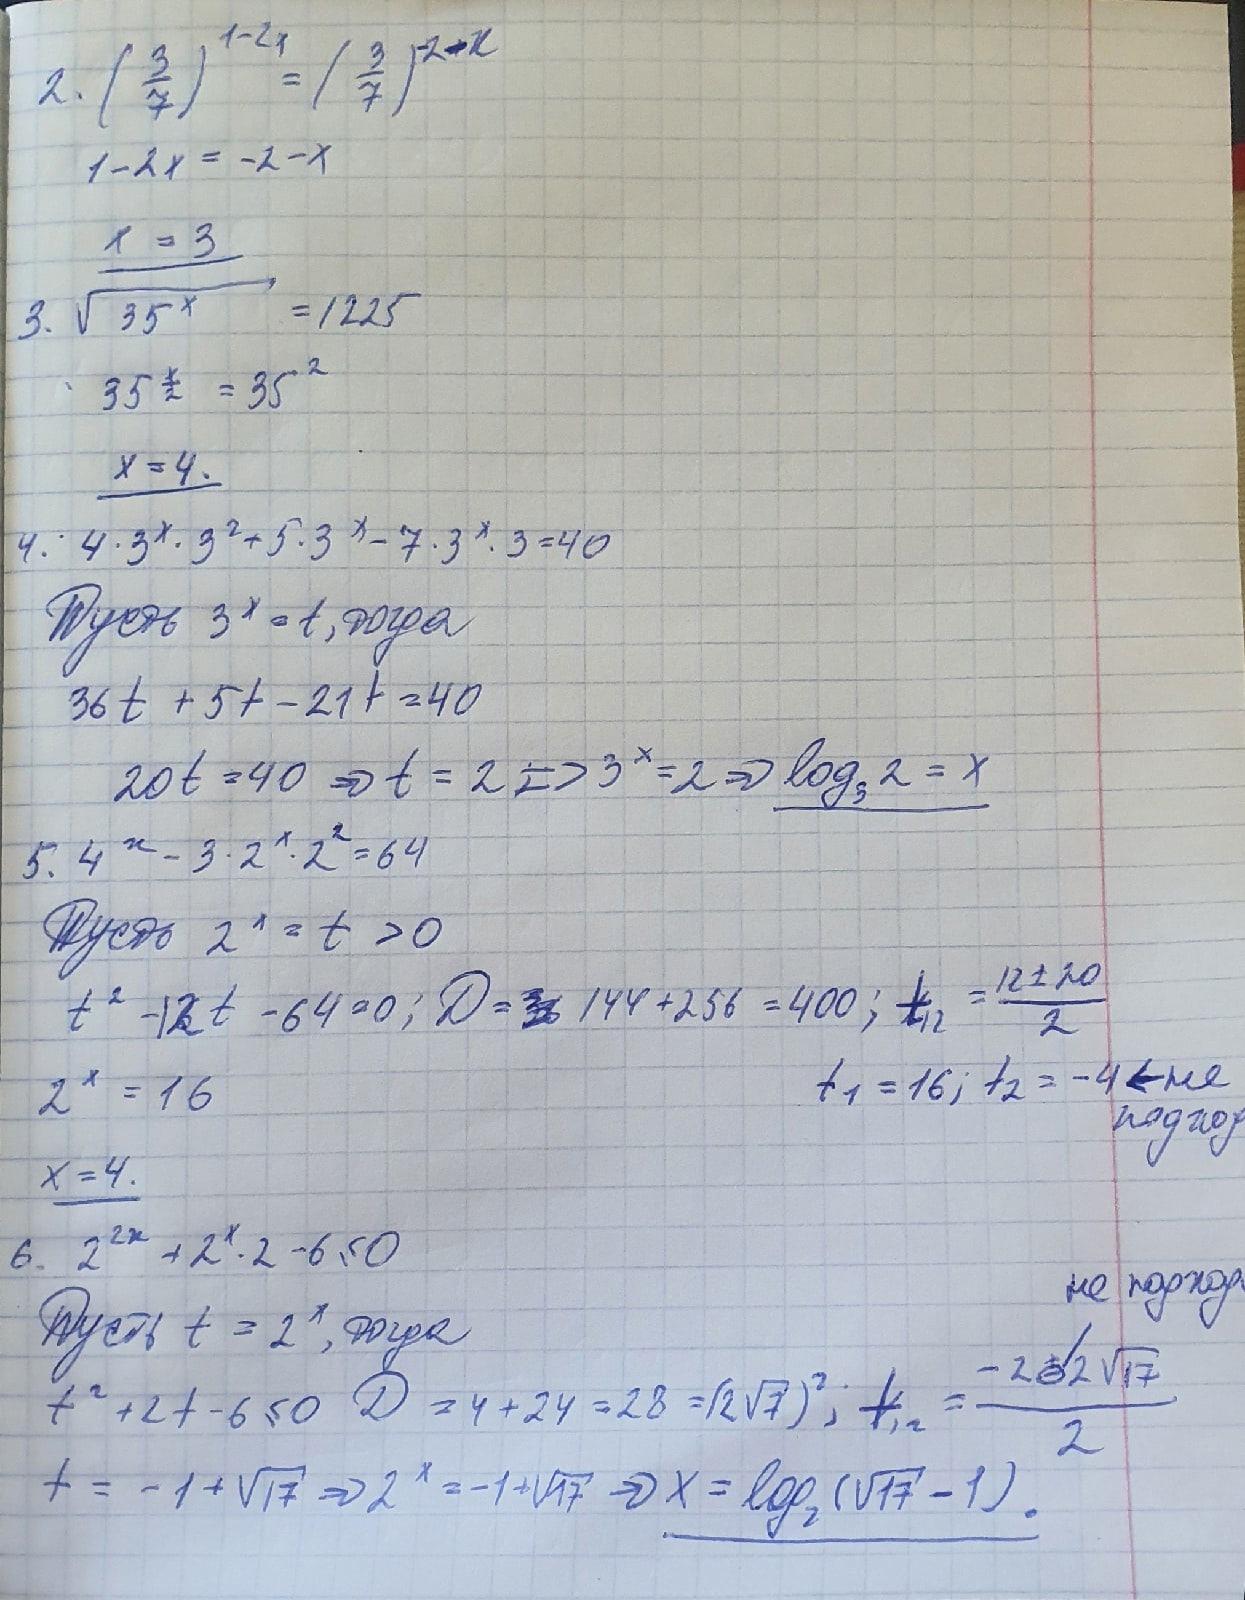 2. (3/7)^(1-2x) = (3/7)^(-2-x)
1-2x = -2-x
x = 3
3. √(35^x) = 1225
35^(x/2) = 35^2
x=4.
4. 4·3^x·3^2+5·3^x-7·3^x·3=40
Пусть 3^x=t, тогда
36t+5t-21t=40
20t=40 => t=2 => 3^x=2 => log_3 2=x
5. 4^x-3·2^x·2^2=64
Пусть 2^x=t>0
t^2-12t-64=0; D=144+256=400; t_12=(12±20)/2
2^x=16 t_1=16; t_2=-4 ← не
подход
x=4.
6. 2^(2x)+2^x·2-6≤0
не подход
Пусть t=2^x, тогда
t^2+2t-6≤0 D=4+24=28=(2√7)^2; t_1,2=(-2±2√17)/2
t=-1+√17 => 2^x=-1+√17 => x=log_2(√17-1).